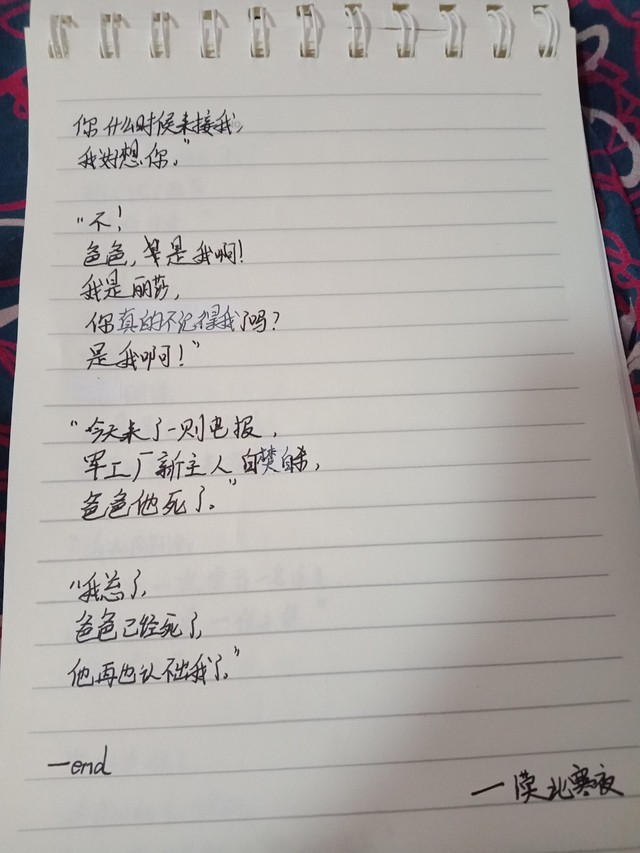 你什么时候来接我，
我好想你。”
“不！
爸爸，是我啊！
我是丽莎，
你真的不记得我了吗？
是我啊！”
“今天来了一则电报，
军工厂新主人自焚自杀，
爸爸他死了。”
“我忘了，
爸爸已经死了，
他再也认不出我了。”
—end
—漠北寒夜